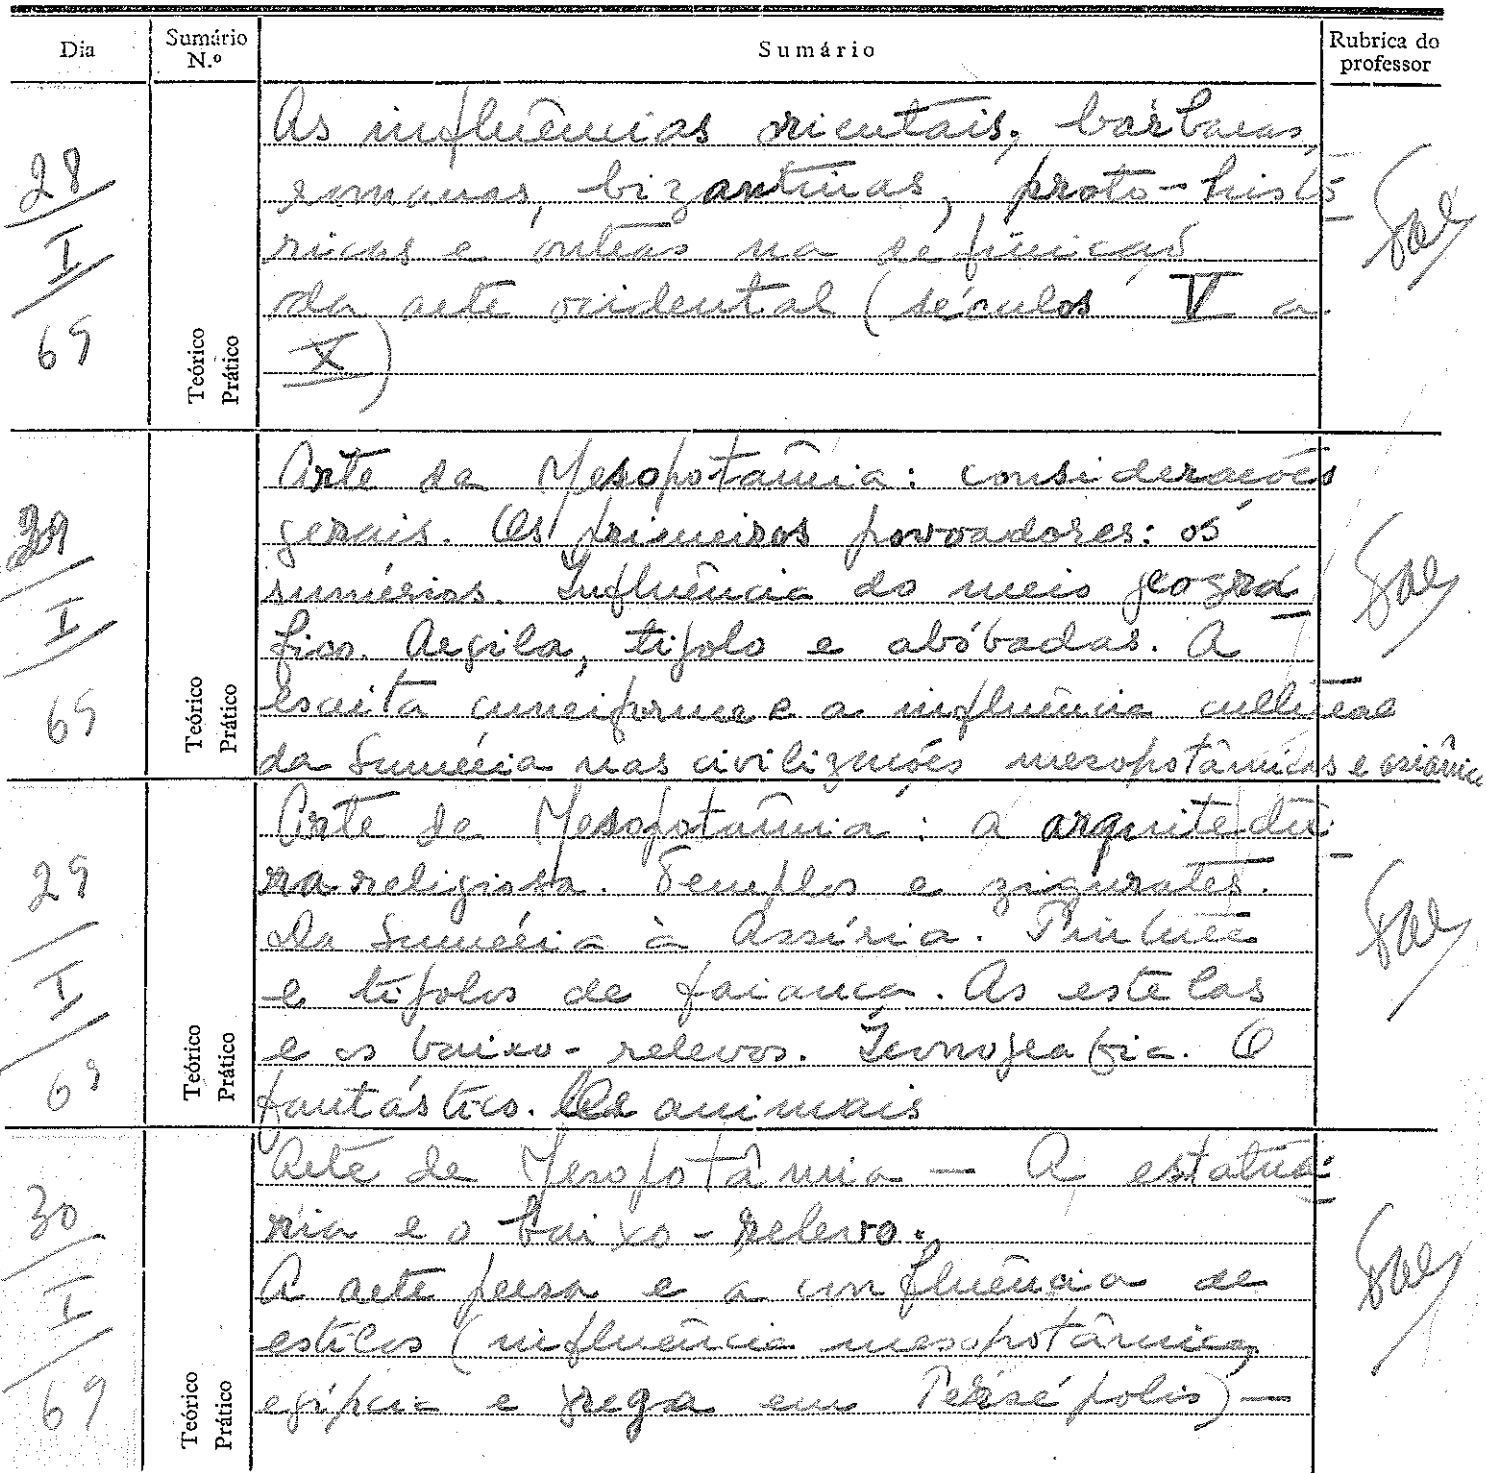 Dia
Sumário N.º
Sumário
Rubrica do professor
28
I
69
Teórico
Prático
As influências orientais, bárbaras,
romanas, bizantinas, proto-histó
ricas e outras na definição
da arte ocidental (séculos V a
X)
29
I
69
Teórico
Prático
Arte da Mesopotâmia: considerações
gerais. Os primeiros povoadores: os
sumérios. Influência do meio geográ
fico. Argila, tijolo e abóbadas. A
escrita cuneiforme e a influência cultural
da Suméria nas civilizações mesopotâmicas e
29
I
69
Teórico
Prático
Arte da Mesopotâmia: a arquitectu
ra religiosa. Templos e zigurates.
Da Suméria à Assíria. Pintura
e tijolos de faiança. As estelas
e os baixo-relevos. Iconografia. O
fantástico. Os animais
30
I
69
Teórico
Prático
Arte de Mesopotâmia — A estatuá
ria e o baixo-relevo.
A arte persa e a confluência de
estilos (influência mesopotâmica,
egípcia e grega em Persépolis) —